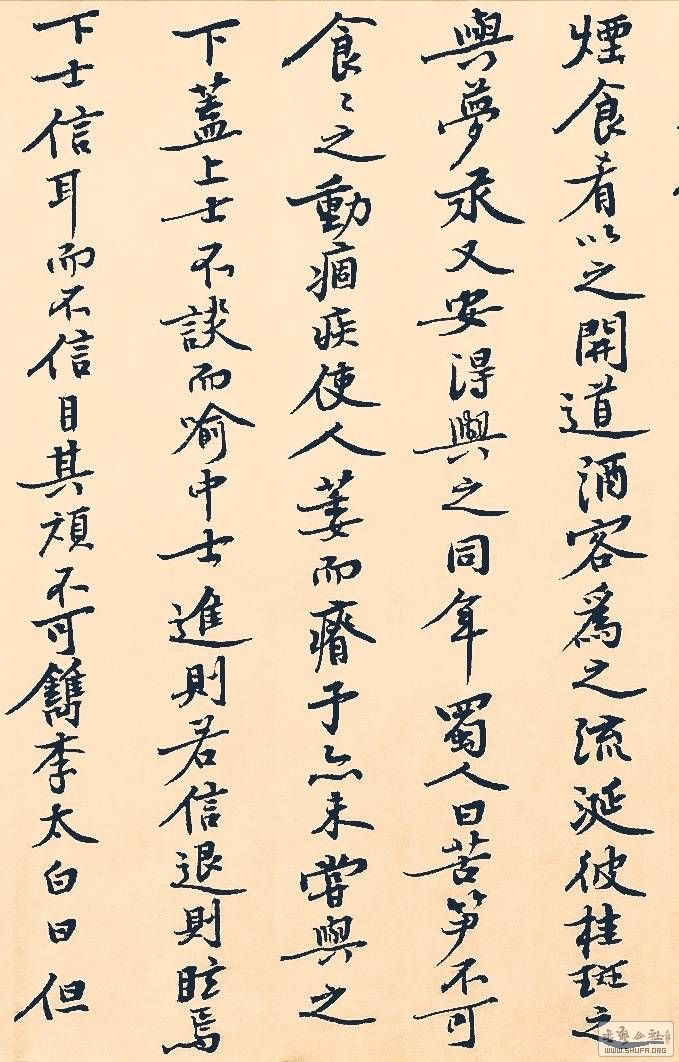 煙食肴以之開道酒客為之流涎彼桂斑之
與夢汞又安得與之同年蜀人曰苦笋不可
食々之動痼疾使人萎而瘠予亦未嘗與之
下蓋上士不談而喻中士進則若信退則眩焉
下士信耳而不信目其頑不可鐫李太白曰但
WWW.SHUFA.ORG